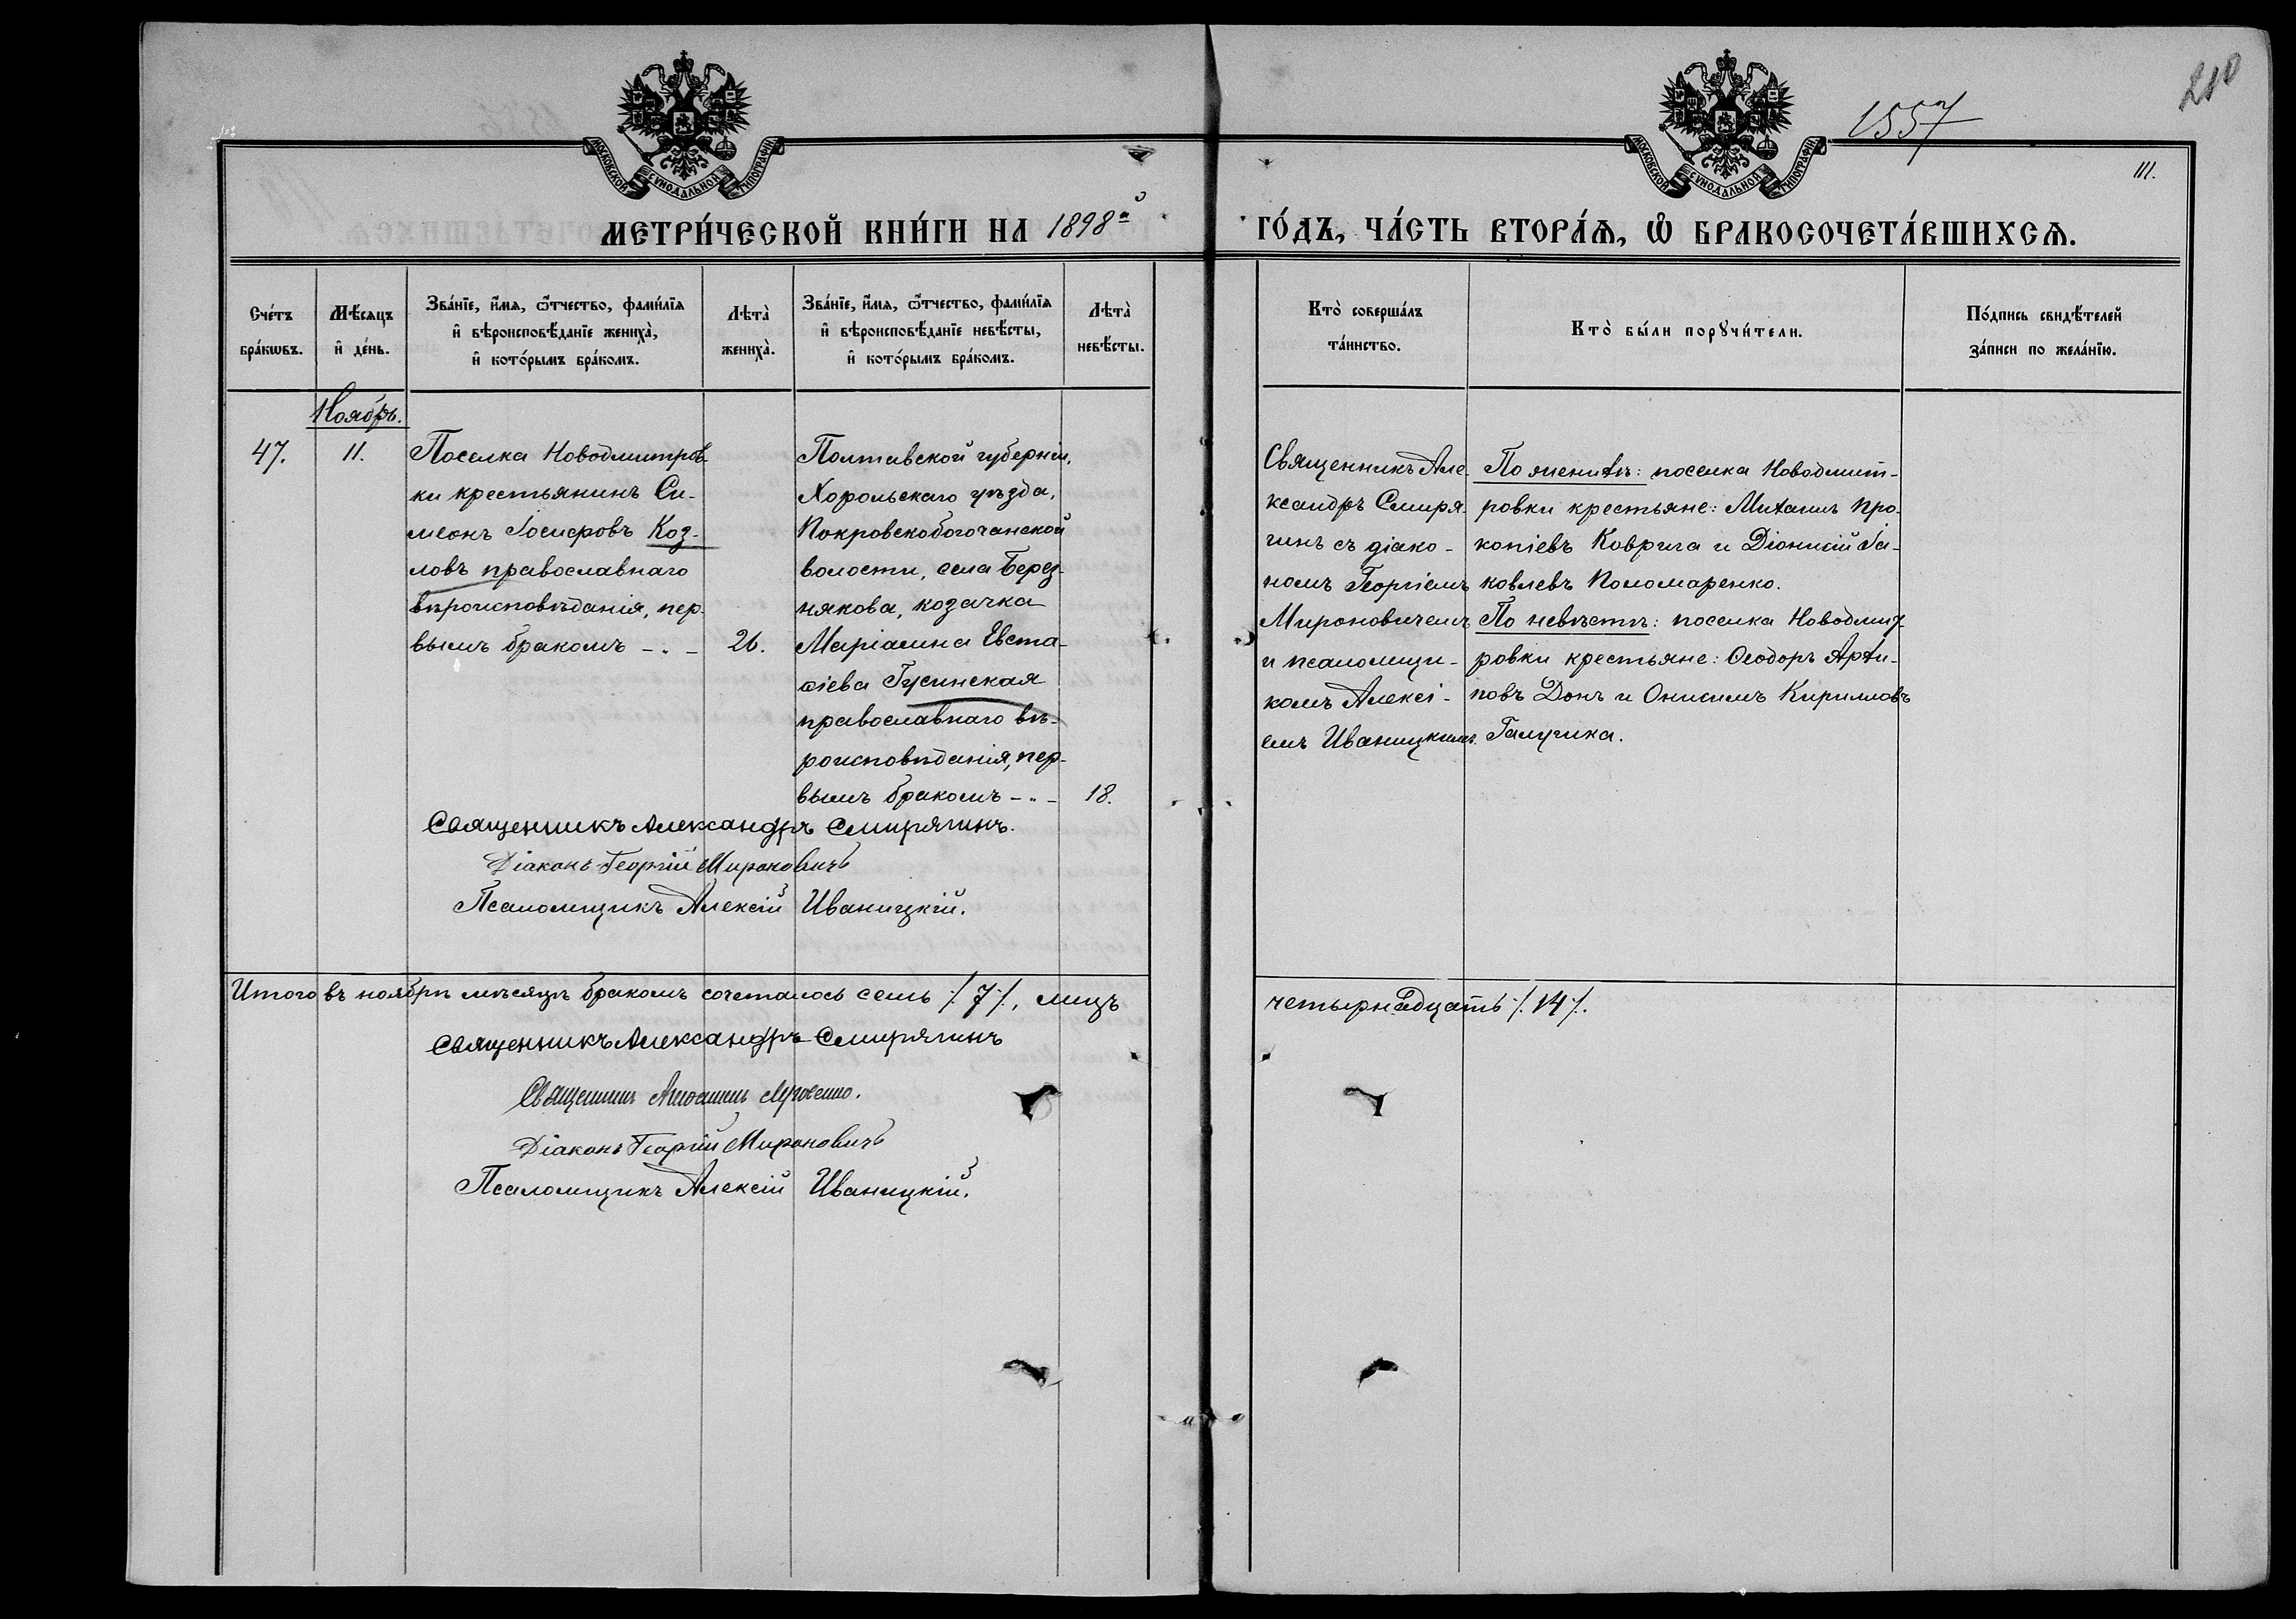 210
1557
МОСКОВСКОЙ СѴНОДАЛЬНОЙ ТИПОГРАФІИ
МОСКОВСКОЙ СѴНОДАЛЬНОЙ ТИПОГРАФІИ
111.
МЕТРИ́ЧЕСКОЙ КНИ́ГИ НА 1898й
ГО́ДЪ, ЧА́СТЬ ВТОРА́Ѧ, Ѡ҆ БРАКОСОЧЕТА́ВШИХСѦ.
Сче́тъ
бра́кѡвъ.
Мѣ́сѧцъ
и҆ де́нь.
Зва́нїе, и҆́мѧ, ѻ҆́тчество, фами́лїѧ
и҆ вѣроисповѣ́данїе жениха̀,
и҆ кото́рымъ бра́комъ.
Лѣта̀
жениха̀.
Зва́нїе, и҆́мѧ, ѻ҆́тчество, фами́лїѧ
и҆ вѣроисповѣ́данїе невѣ́сты,
и҆ кото́рымъ бра́комъ.
Лѣта̀
невѣ́сты.
Кто̀ соверша́лъ
та́инство.
Кто̀ бы́ли порꙋчи́тели.
По́дпись свидѣ́телей
за́писи по жела́нїю.
Ноябрь.
47.
11.
Поселка Новодмитров-
ки крестьянинъ Си-
меонъ Іосифовъ Коз-
ловъ православнаго
вѣроисповѣданія, пер-
вымъ бракомъ - „ -
26.
Полтавской губерніи,
Хорольскаго уѣзда,
Покровскобогочанской
волости, села Берез-
някова, козачка
Маріамна Евста-
ѳіева Гусинская
православнаго вѣ-
роисповѣданія, пер-
вымъ бракомъ - „ -
18.
Священникъ Але-
ксандръ Смиря-
гинъ съ діако-
номъ Георгіемъ
Мироновичемъ
и псаломщи-
комъ Алексі-
емъ Иваницкимъ.
По женихѣ: поселка Новодмит-
ровки крестьяне: Михаилъ Про-
копіевъ Коврига и Діонисій Іа-
ковлевъ Пономаренко.
По невѣстѣ: поселка Новодмит-
ровки крестьяне: Ѳеодоръ Архи-
повъ Донъ и Онисимъ Кирилловъ
Галушка.
Священникъ Александръ Смирягинъ.
Діаконъ Георгій Мироновичъ
Псаломщикъ Алексій Иваницкій.
Итого въ ноябрѣ мѣсяцѣ бракомъ сочеталось семь /.7./, лицъ
четырнадцать /.14./.
Священникъ Александръ Смирягинъ
Священникъ
Діаконъ Георгій Мироновичъ
Псаломщикъ Алексій Иваницкій.